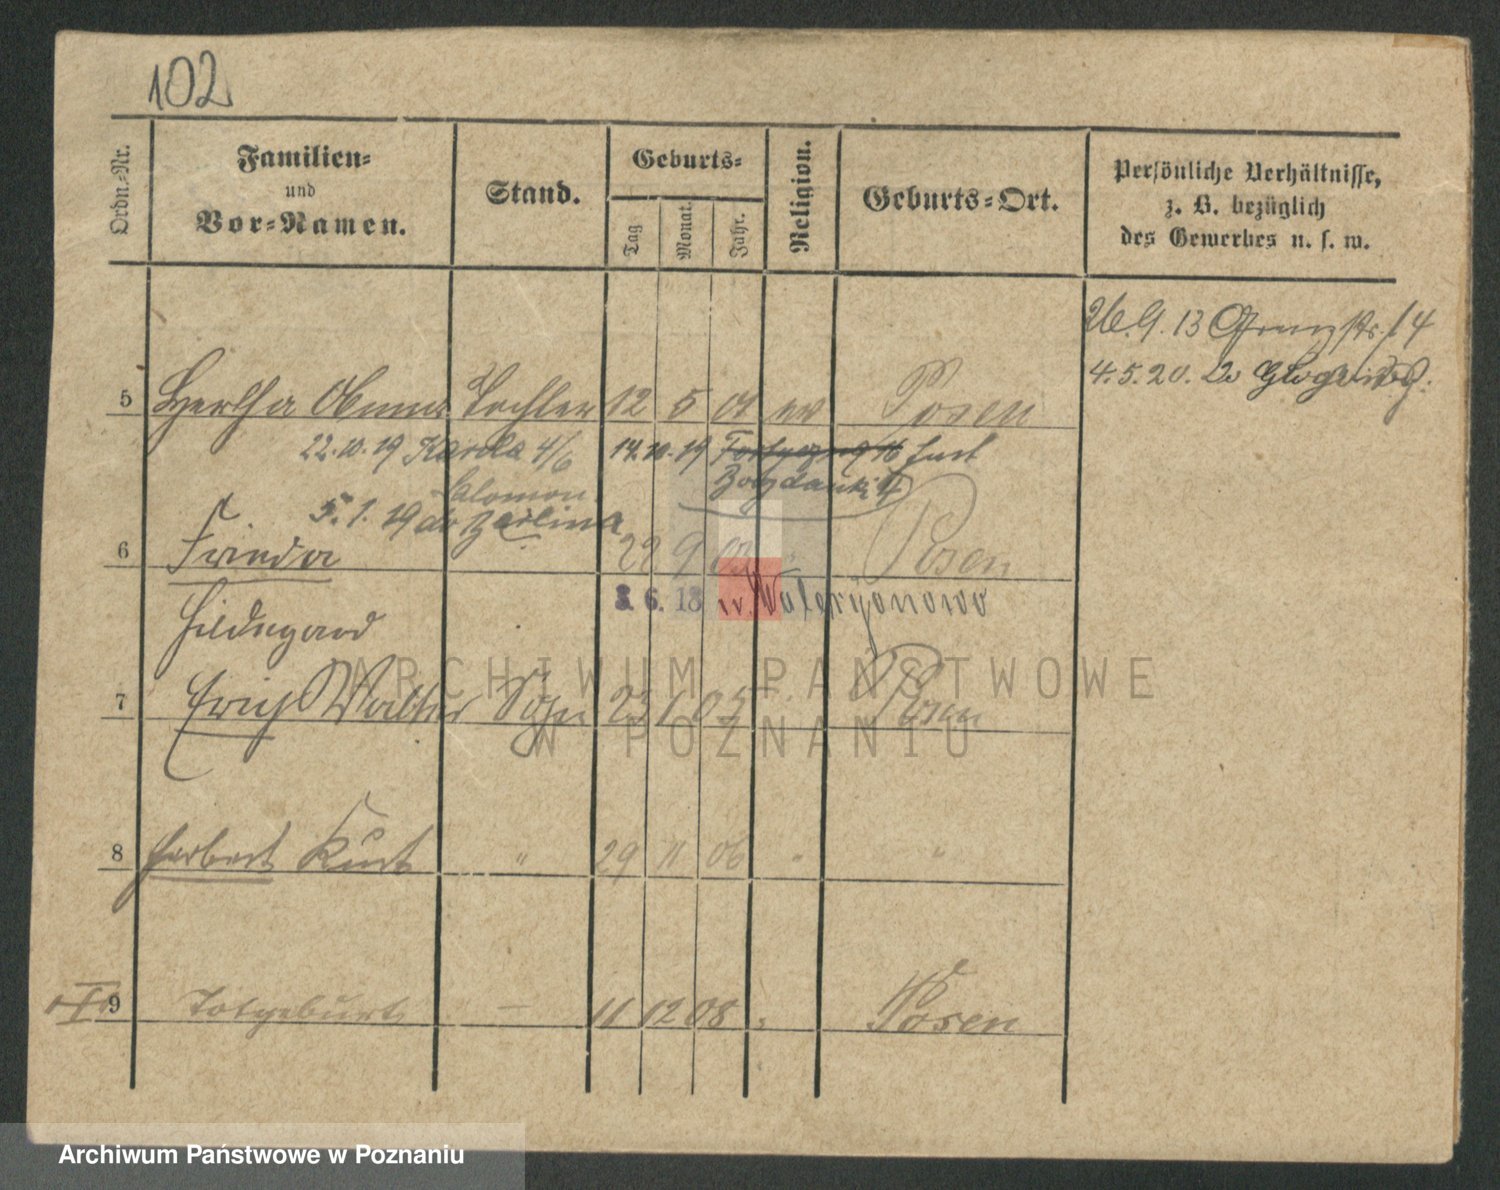 102
Ordn.-Nr.
Familien-
und
Vor-Namen.
Stand.
Geburts-
Tag
Monat.
Jahr.
Religion.
Geburts-Ort.
Persönliche Verhältnisse,
z. B. bezüglich
des Gewerbes u. s. w.
26.9.13 14
4.5.20.
5 Hertha Tochter 12 5 01 ev Posen
22.10.19 4/6 14.10.19
Bogdanki
5.1.19
6 Frieda 22 9 Posen
3. 6. 18 w. Waleryanowo
Hildegard
7 Erich Walter Sohn 23 1 05 Posen
8 Herbert Kurt " 29 11 06 " "
9 Totgeburt – 11 12 08 " Posen
ARCHIWUM PAŃSTWOWE
W POZNANIU
Archiwum Państwowe w Poznaniu